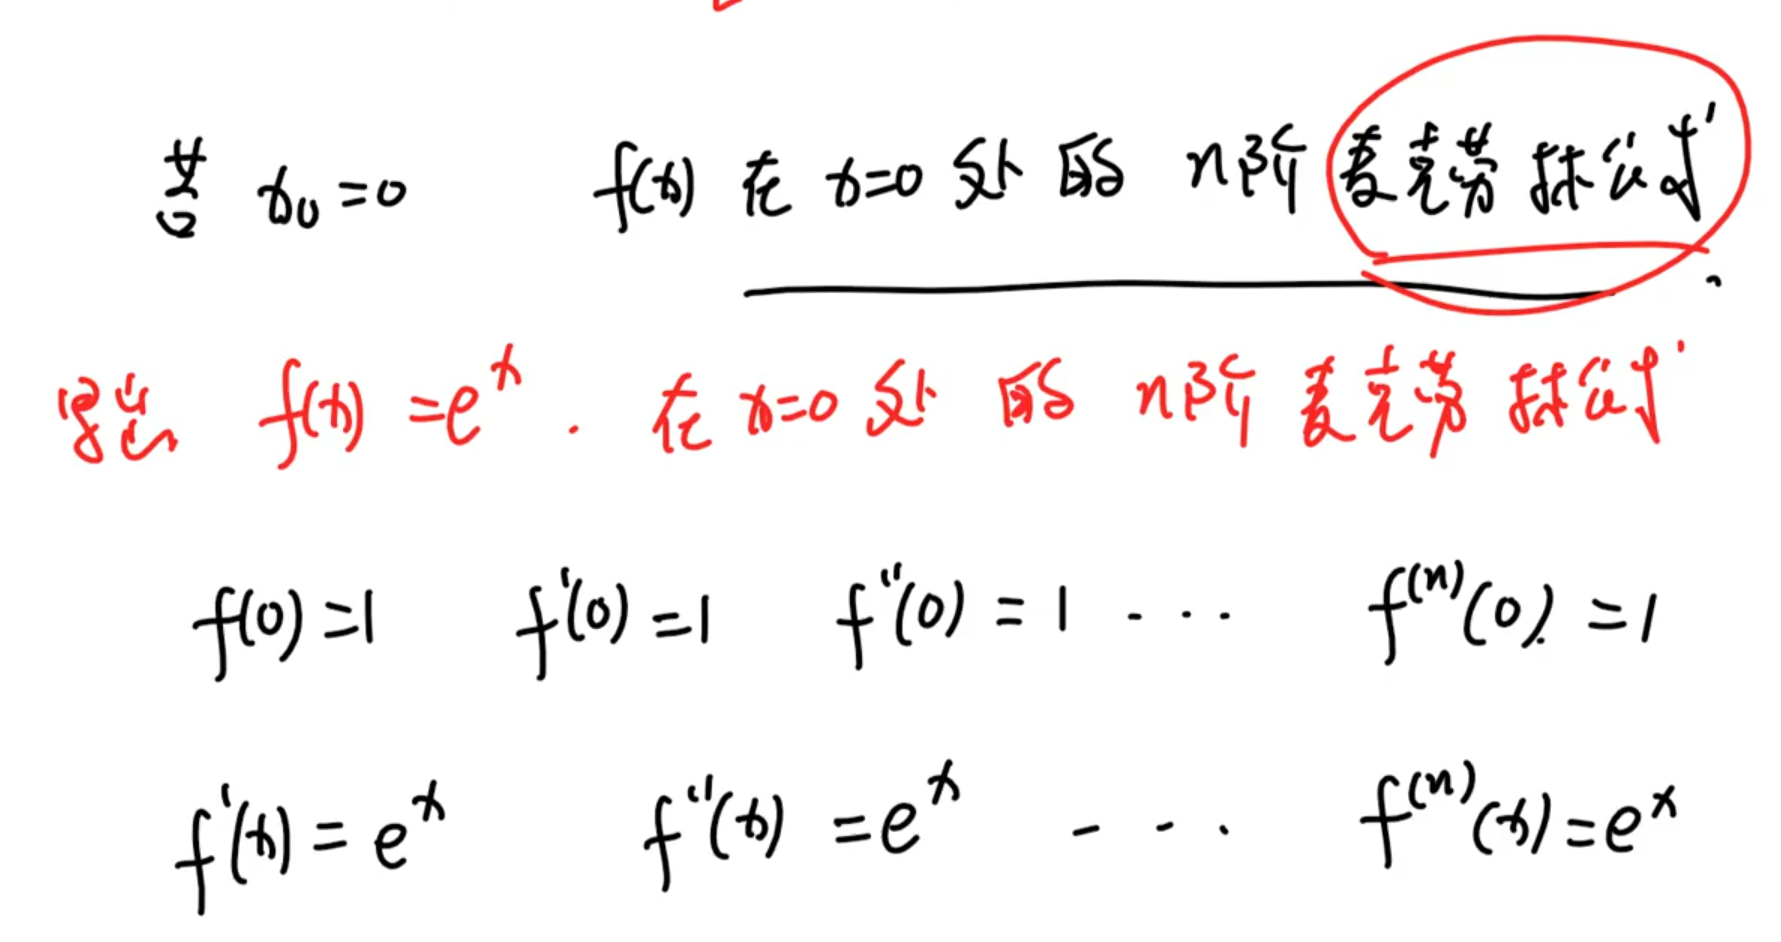 若 x₀=0 f(x) 在 x=0 处 的 n阶 麦克劳林公式.
写出 f(x)=eˣ. 在 x=0 处 的 n阶 麦克劳林公式
f(0)=1 f'(0)=1 f''(0)=1 ... f⁽ⁿ⁾(0)=1
f'(x)=eˣ f''(x)=eˣ ... f⁽ⁿ⁾(x)=eˣ